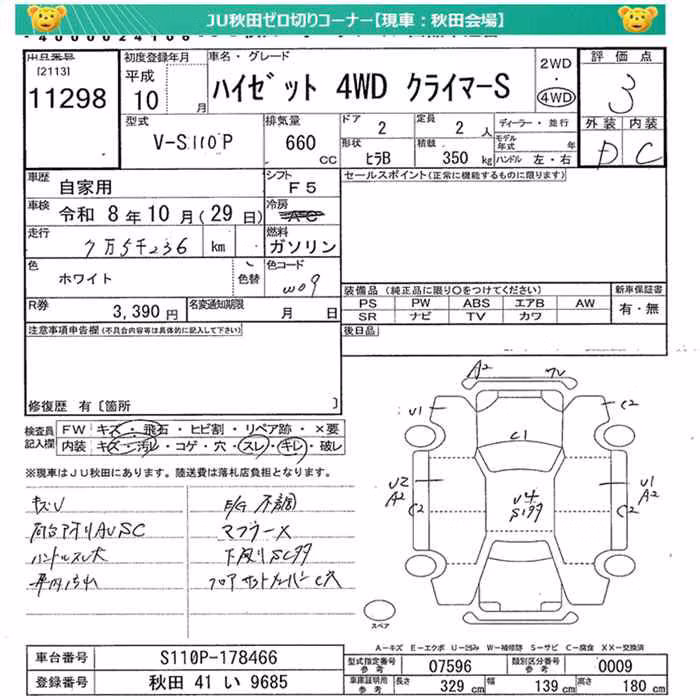 JU秋田ゼロ切りコーナー【現車：秋田会場】
出品番号
[2113]
11298
初度登録年月
平成
10 月
車名・グレード
ハイゼット 4WD クライマーS
2WD
・
4WD
評価点
3
外装 内装
D C
型式
V-S110P
排気量
660 CC
ドア
2
定員
2 人
形状
ヒラB
積載
350 kg
ディーラー・並行
モデル年式 年
ハンドル 左・右
車歴
自家用
シフト
F5
車検
令和 8年 10月(29日)
冷房
AC
走行
7万5千236 km
燃料
ガソリン
色
ホワイト
色替
色コード
W09
R券
3,390 円
名変通知期限
月 日
セールスポイント(正常に機能するものに限ります)
装備品 (純正品に限り○をつけてください)
新車保証書
PS PW ABS エアB AW
有・無
SR ナビ TV カワ
後日品
注意事項申告欄(不具合内容等は具体的に記入して下さい)
修復歴 有〔箇所 〕
検査員記入欄
FW キズ・飛石・ヒビ割・リペア跡・×要
内装 キズ・汚レ・コゲ・穴・スレ・キレ・破レ
※現車はJU秋田にあります。陸送費は落札店負担となります。
キズU
荷台アオリAUSC
ハンドルスレ大
E/G 不調
マフラーX
下廻りSC99
フロアサットカバーC穴
A2
U1
C2
C1
U2
A2
C2
U4
S199
U1
A2
C2
スペア
A－キズ E－エクボ U－凹み W－補修跡 S－サビ C－腐食 XX－交換済
車台番号
S110P-178466
登録番号
秋田 41 い 9685
型式指定番号 参考
07596
類別区分番号 参考
0009
車庫証明用 参考
長さ 329 cm
幅 139 cm
高さ 180 cm